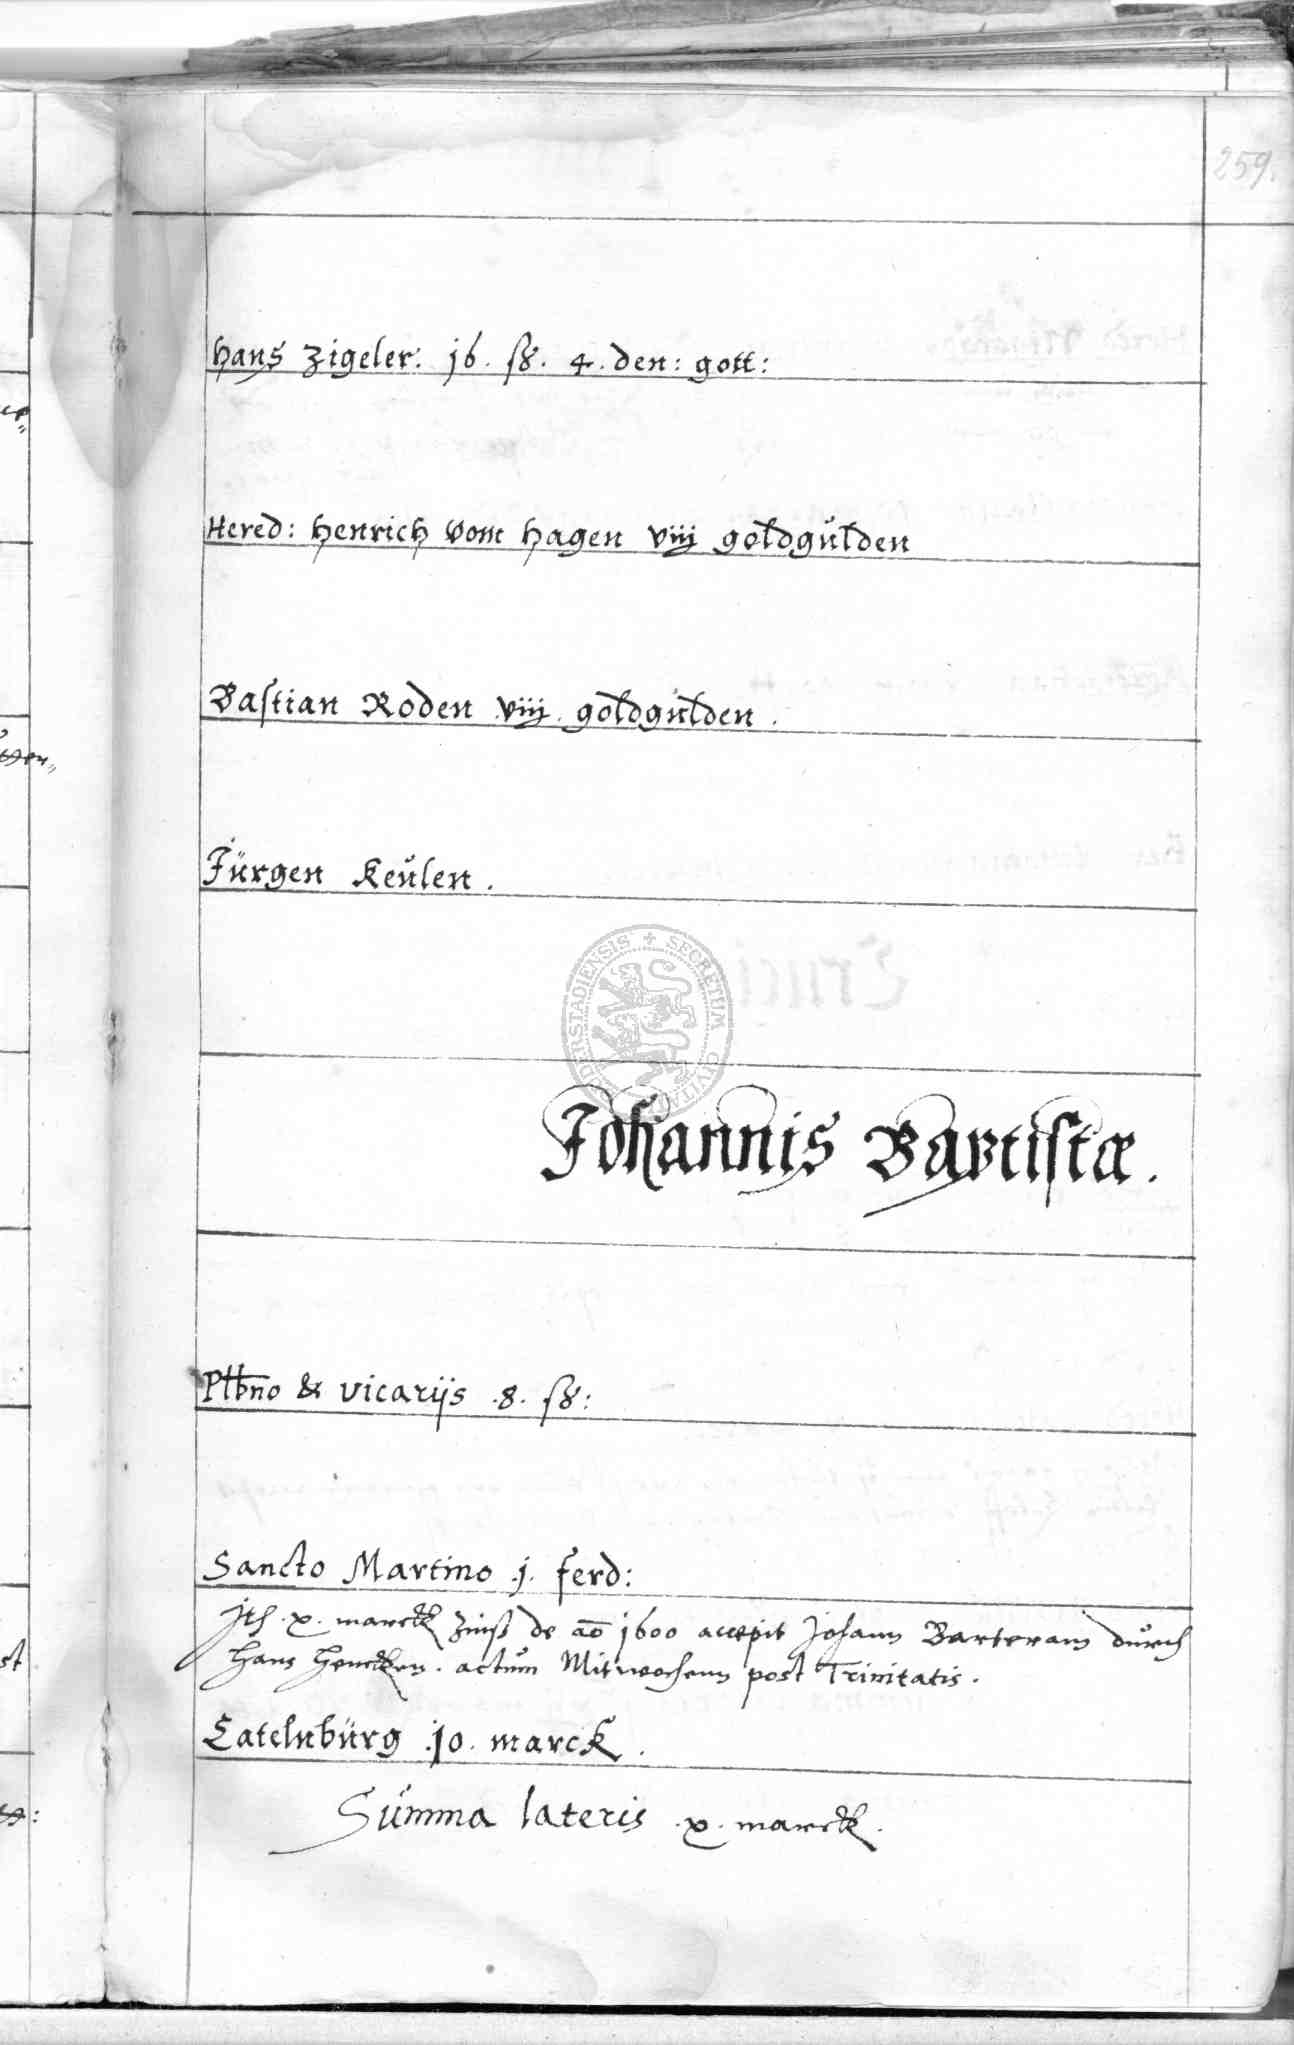 259.
Hans Zigeler. 16. ß. 4. den: gott:
Hered: Henrich vom Hagen viij goldgulden
Bastian Roden viij. goldgulden.
Jürgen Keulen.
SECRETUM CIVITA DERSTADIENSIS
Johannis Baptistæ.
Plbno & vicarijs .8. ß:
Sancto Martino .j. ferd:
.x. marck Zinß de ao 1600 accepit Johann Barteram durch
Hans Hencken. actum Mitwochenn post Trinitatis.
Catelnbürg .10. marck.
Summa lateris .x. marck.